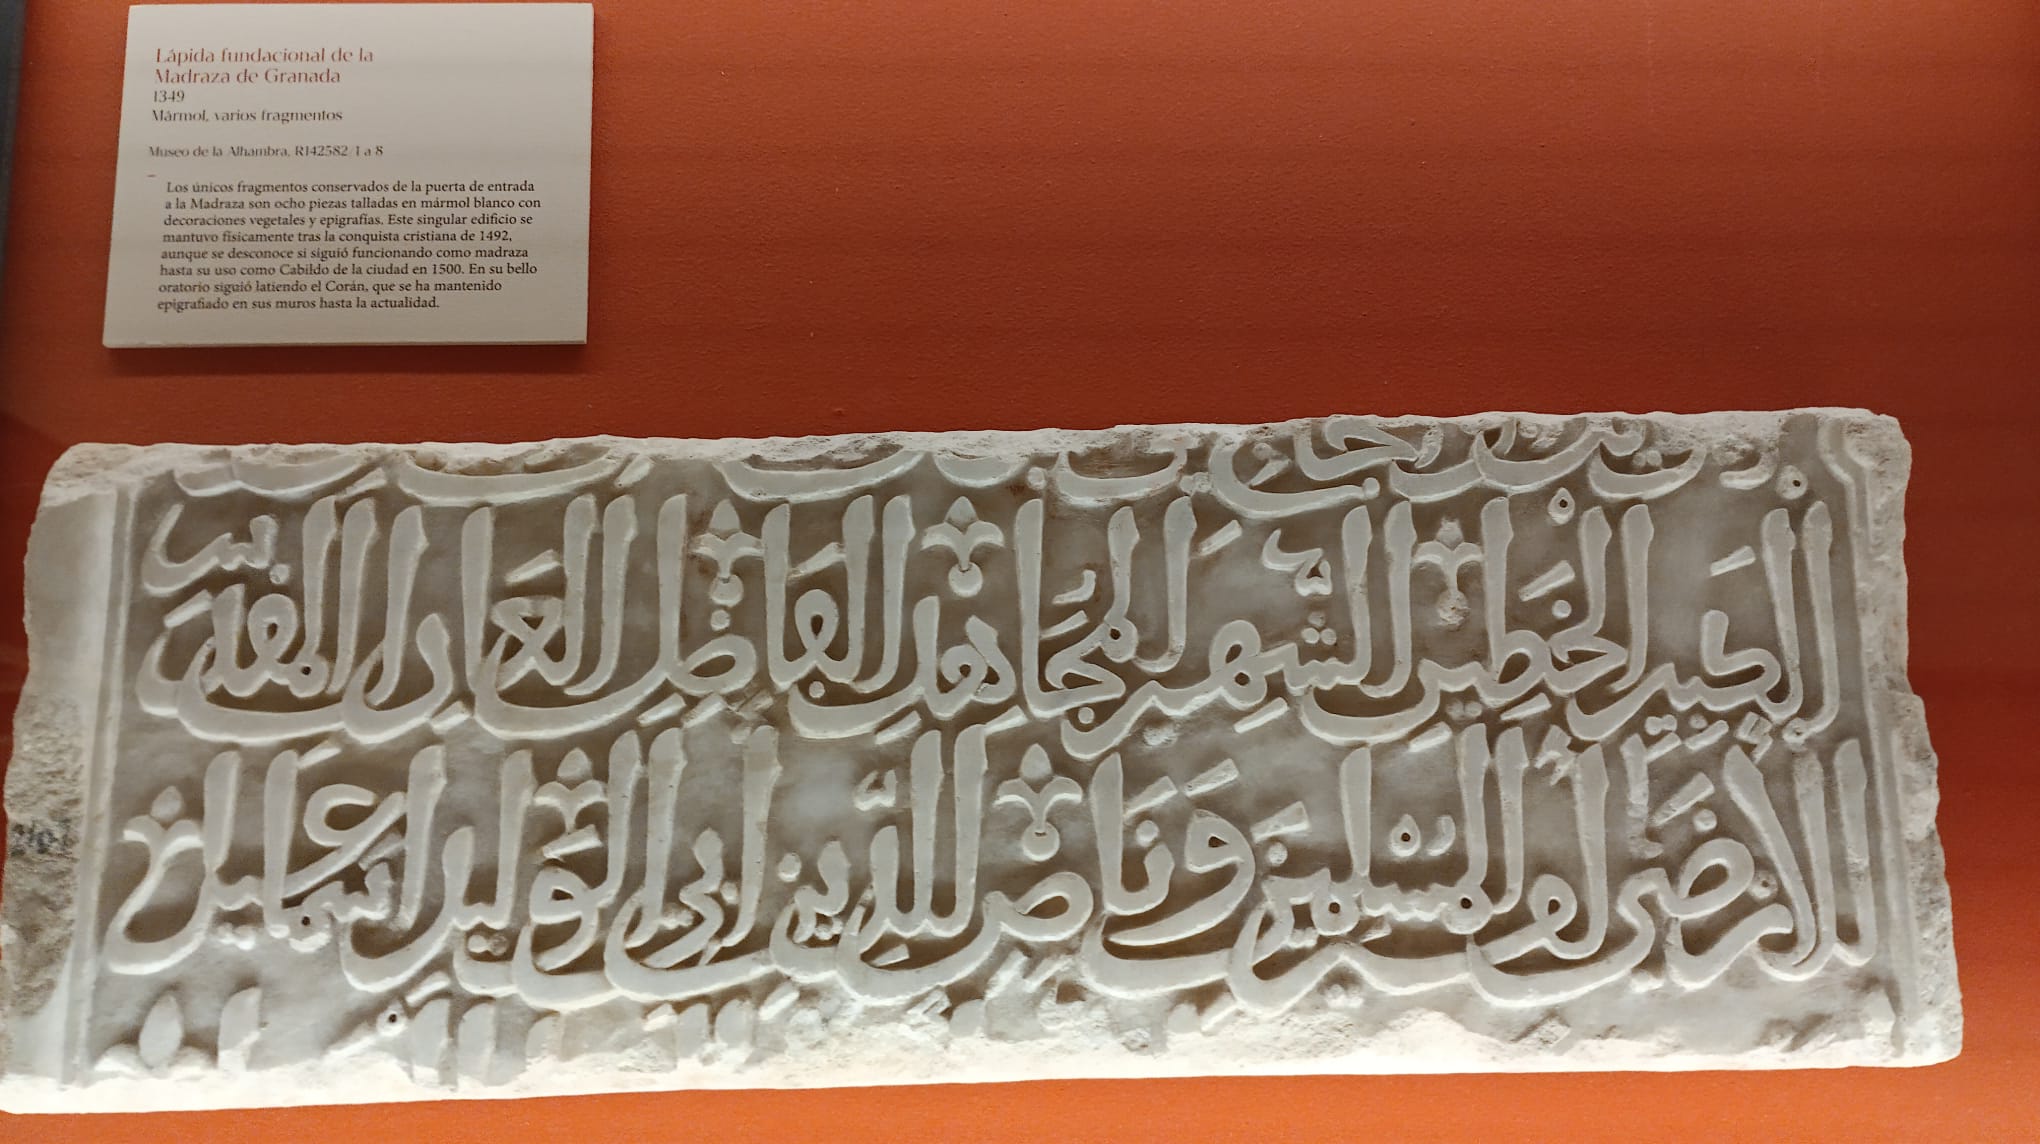 Lápida fundacional de la
Madraza de Granada
1349
Mármol, varios fragmentos
Museo de la Alhambra, R142582/1 a 8
Los únicos fragmentos conservados de la puerta de entrada
a la Madraza son ocho piezas talladas en mármol blanco con
decoraciones vegetales y epigrafías. Este singular edificio se
mantuvo físicamente tras la conquista cristiana de 1492,
aunque se desconoce si siguió funcionando como madraza
hasta su uso como Cabildo de la ciudad en 1500. En su bello
oratorio siguió latiendo el Corán, que se ha mantenido
epigrafiado en sus muros hasta la actualidad.
الكبير الخطير الشهير المجاهد الفاضل العادل المقدس
الأرضى أمير المسلمين وناصر الدين أبي الوليد إسماعيل